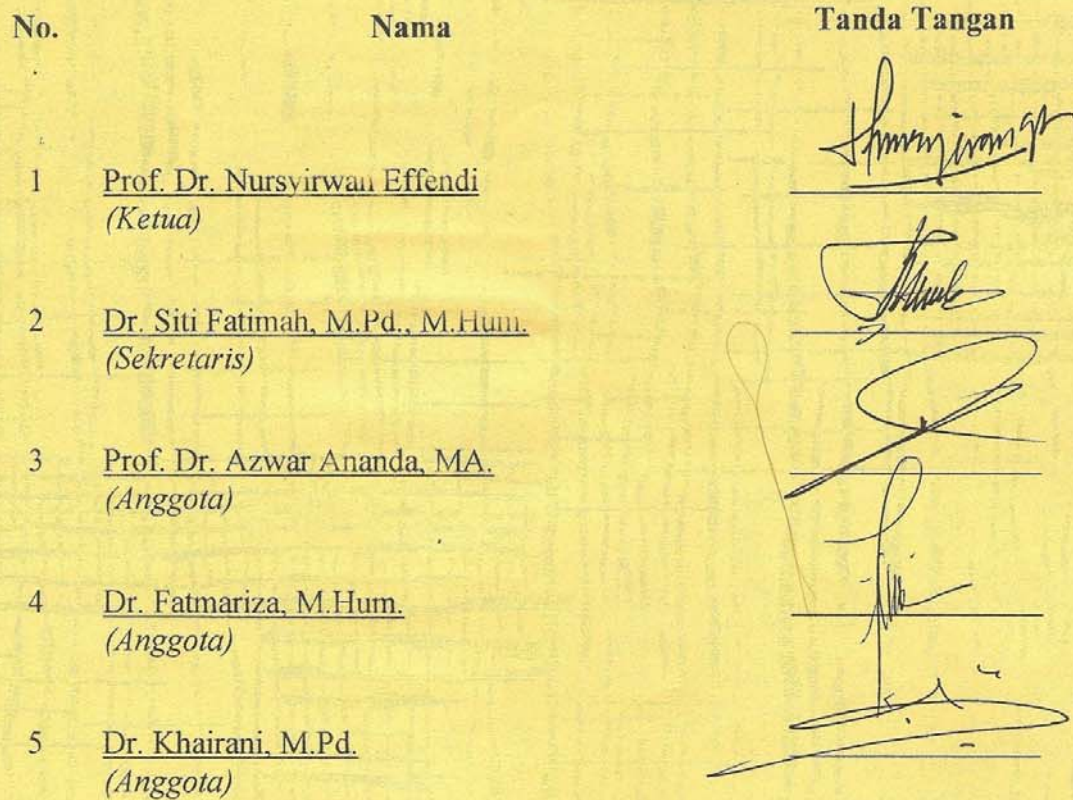 No. Nama Tanda Tangan
1 Prof. Dr. Nursyirwan Effendi
(Ketua)
2 Dr. Siti Fatimah, M.Pd., M.Hum.
(Sekretaris)
3 Prof. Dr. Azwar Ananda, MA.
(Anggota)
4 Dr. Fatmariza, M.Hum.
(Anggota)
5 Dr. Khairani, M.Pd.
(Anggota)